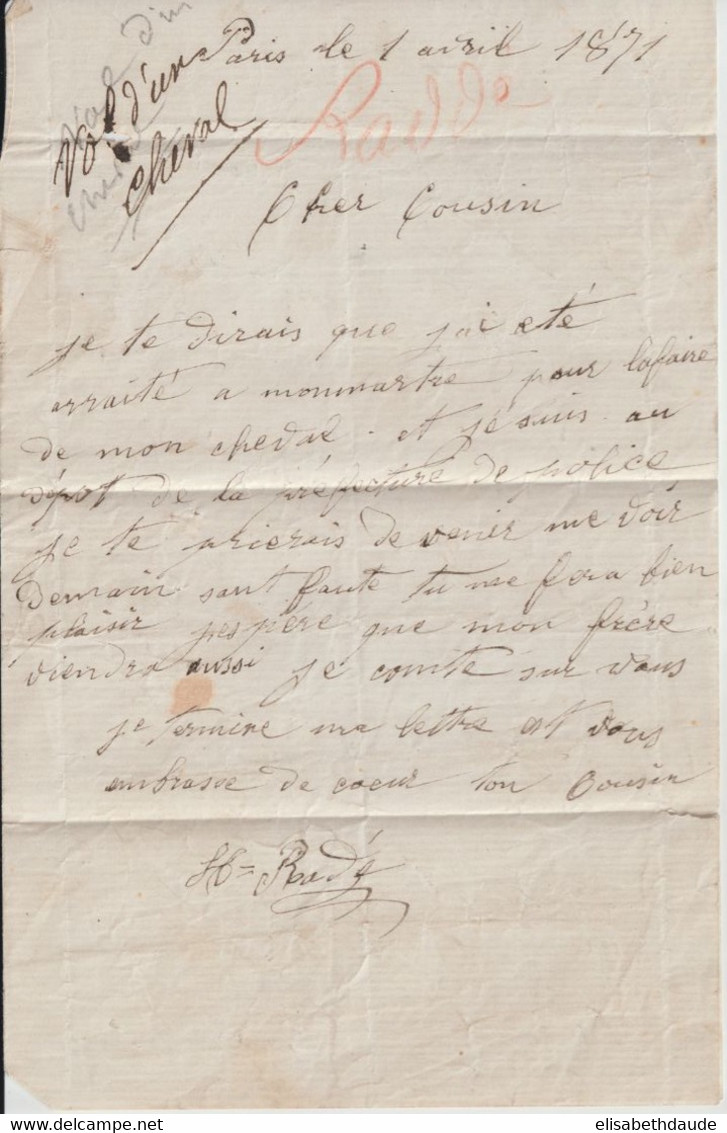 Paris le 1 avril 1871
Vol d'un
Cheval
Vol d'un
Cheval
Radde
Cher Cousin
je te dirais que j'ai eté
arraité a monmartre pour lafaire
de mon cheval. et je suis au
dépot de la préfecture de police
je te prierais de venir me voir
demain sant faute tu me fera bien
plaisir jespére que mon frére
viendra aussi je comte sur vous
je termine ma lettre et vous
embrasse de coeur ton Cousin
Hte Radé
elisabethdaude